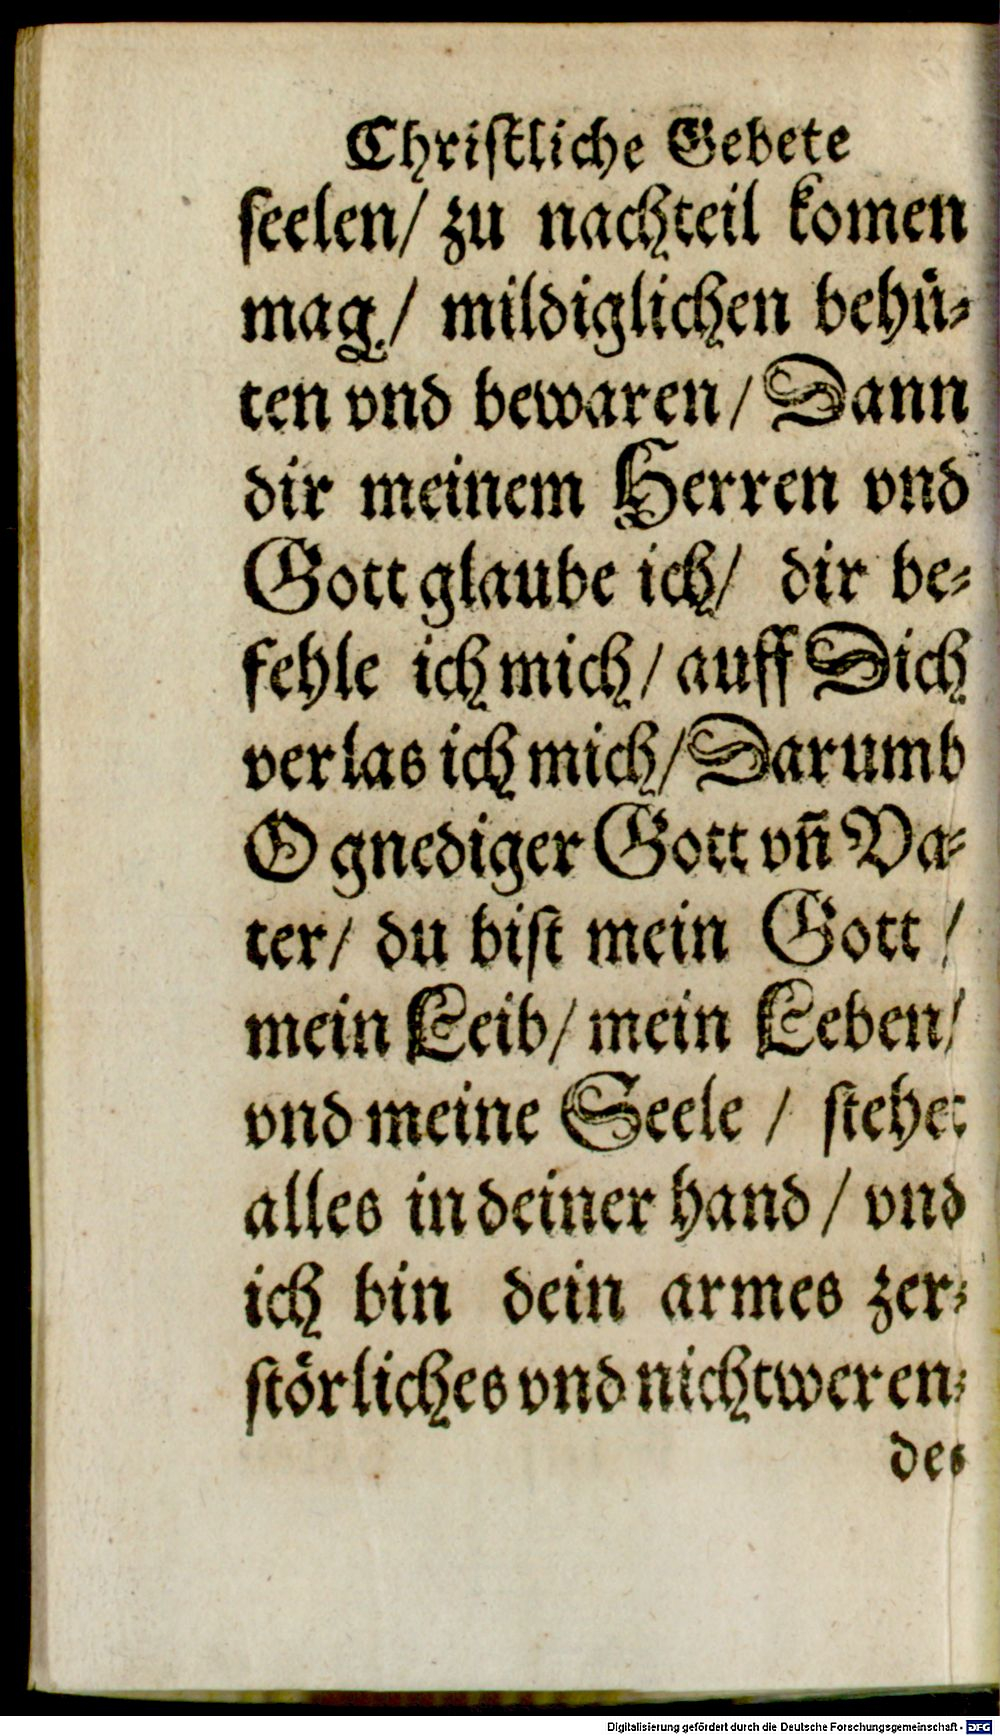 Christliche Gebete
seelen/ zu nachteil komen
mag/ mildiglichen behü⸗
ten vnd bewaren/ Dann
dir meinem Herren vnd
Gott glaube ich/ dir be⸗
fehle ich mich/ auff Dich
verlas ich mich/ Darumb
O gnediger Gott vn̄ Va⸗
ter/ du bist mein Gott/
mein Leib/ mein Leben/
vnd meine Seele / stehet
alles in deiner hand / vnd
ich bin dein armes zer⸗
störliches vnd nichtweren⸗
des
Digitalisierung gefördert durch die Deutsche Forschungsgemeinschaft - DFG